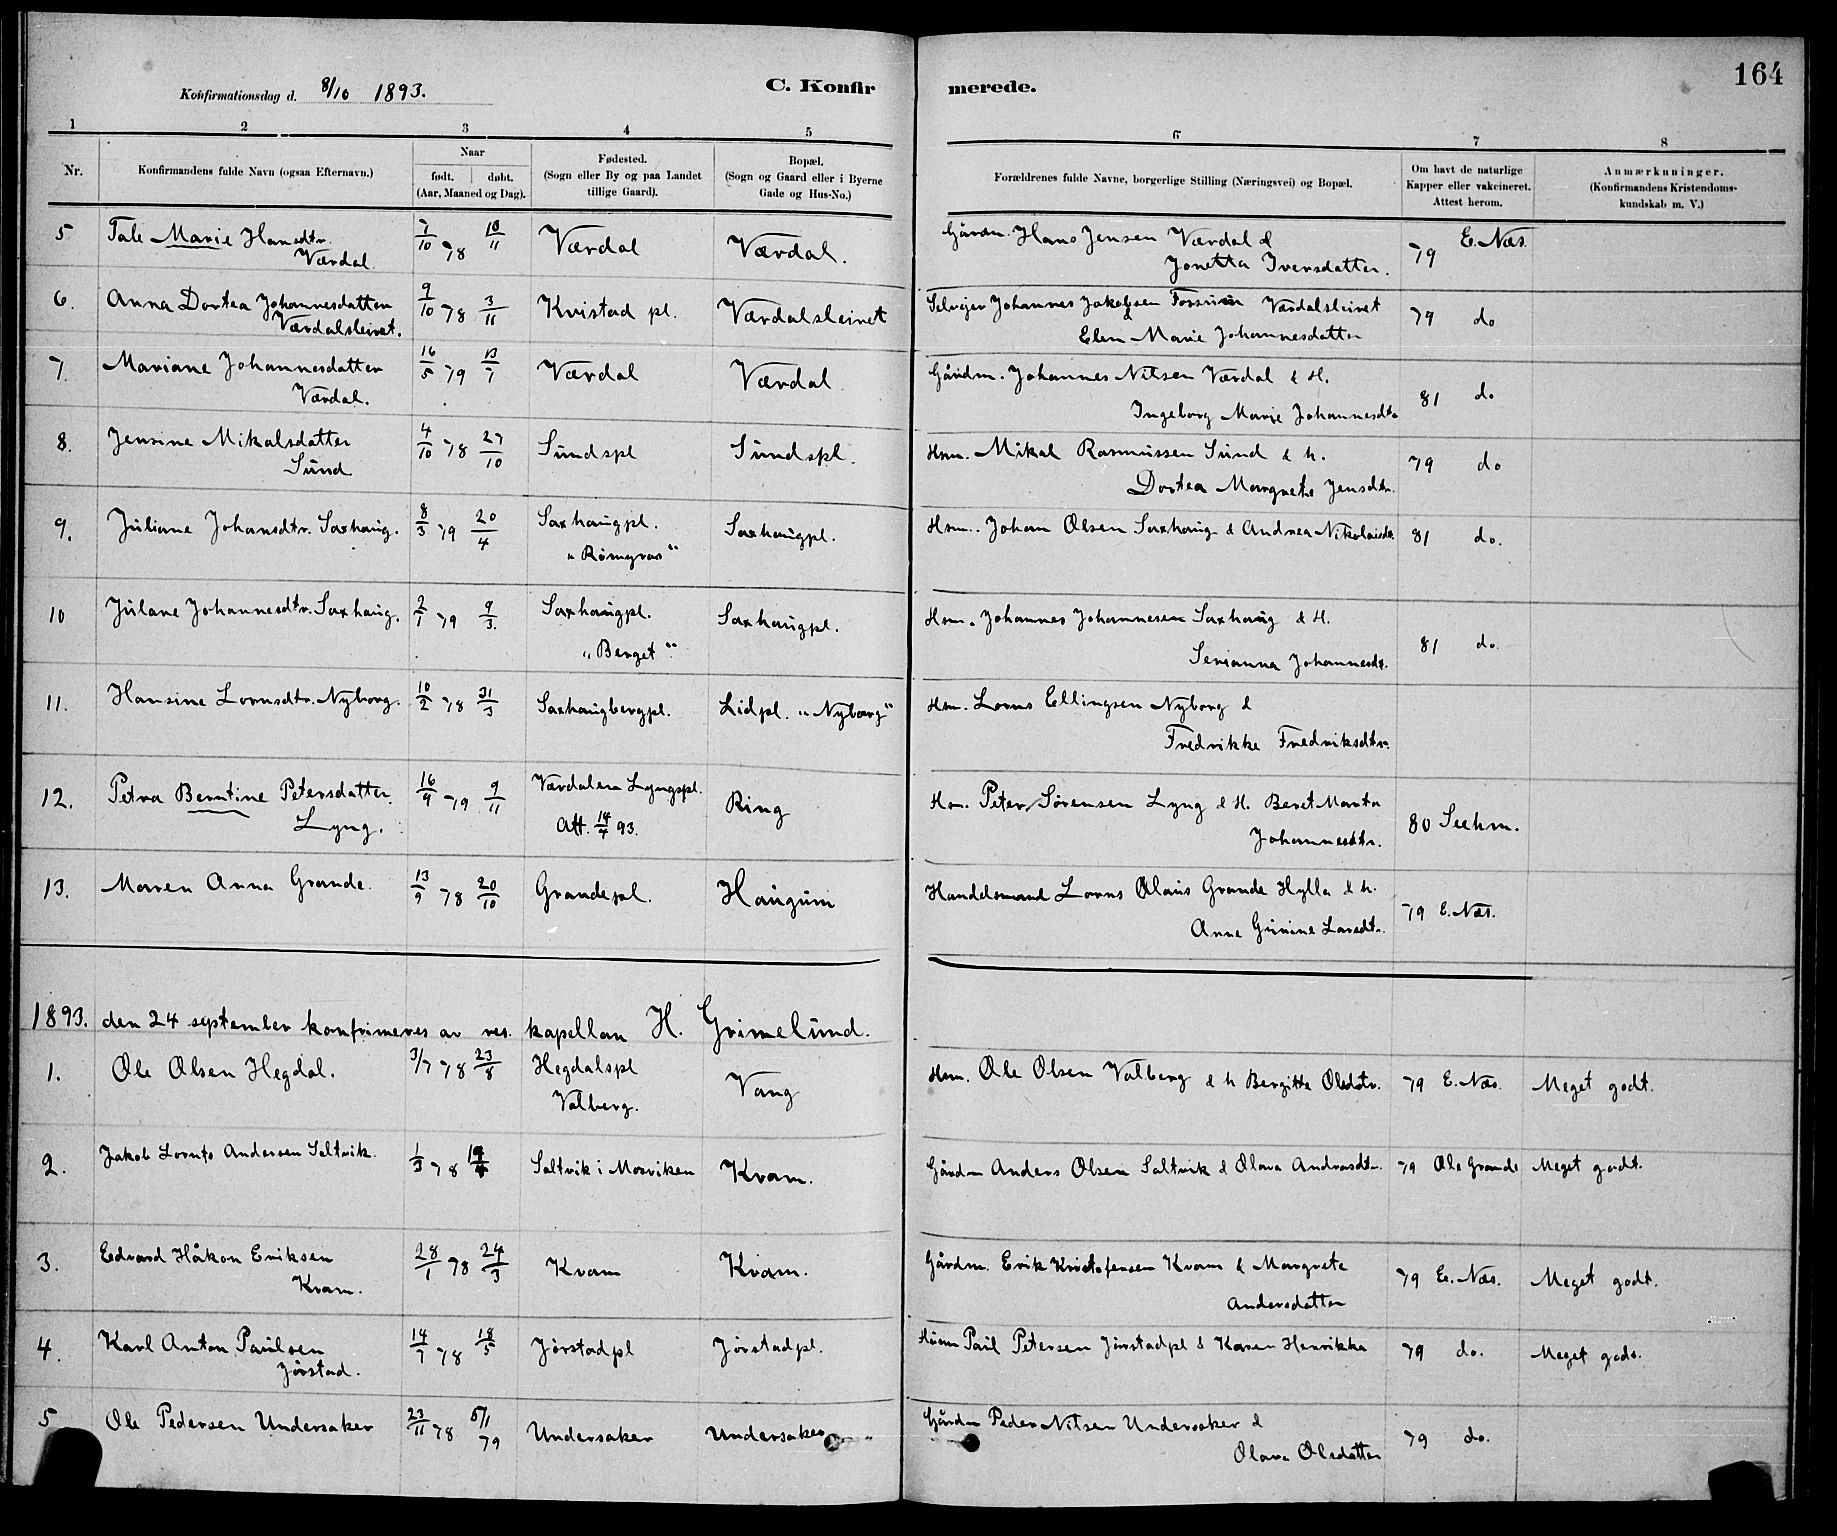 164
Konfirmationsdag d. 8/10 1893.
C. Konfirmerede.
1 2 3 4 5 6 7 8
Nr.
Konfirmandens fulde Navn (ogsaa Efternavn.)
Naar
født. døbt.
(Aar, Maaned og Dag).
Fødested.
(Sogn eller By og paa Landet
tillige Gaard).
Bopæl.
(Sogn og Gaard eller i Byerne
Gade og Hus-No.)
Forældrenes fulde Navne, borgerlige Stilling (Næringsvei) og Bopæl.
Om havt de naturlige
Kapper eller vakcineret.
Attest herom.
Anmærkninger.
(Konfirmandens Kristendoms-
kundskab m. V.)
5 Tale Marie Hansdtr. 7/10 78 10/11 Værdal Værdal. Gårdm. Hans Jensen Værdal & 79 E. Næs.
Værdal. Jonetta Iversdatter.
6. Anna Dortea Johannesdatter 9/10 78 3/11 Kvistad pl. Værdalsleiret Selvejer Johannes Jakobsen Fossum Værdalsleiret 79 do
Værdalsleiret. & Elen Marie Johannesdatter
7. Mariane Johannesdatter 16/5 79 13/7 Værdal Værdal. Gårdm. Johannes Nilsen Værdal & H. 81 do
Værdal. Ingeborg Marie Johannesdtr
8. Jensine Mikalsdatter 4/10 78 27/10 Sundspl Sundspl. Hsm. Mikal Rasmussen Sund & h. 79 do
Sund Dortea Margrete Jensdtr.
9. Juliane Johansdtr. Saxhaug. 8/3 79 20/4 Saxhaugpl. Saxhaugpl. Hsm. Johan Olsen Saxhaug & Andrea Nikolaisdr. 81 do.
10 Julane Johannesdtr. Saxhaug. 2/1 79 9/3. Saxhaugpl. Saxhaugpl. Hsm. Johannes Johannesen Saxhaug & H. 81 do.
"Berget". Serianna Johannesdr.
11. Hansine Lornsdtr. Nyborg. 10/2 78 31/3 Saxhaugbergpl. Lidpl. "Nyborg" Hsm. Lorns Ellingsen Nyborg &
Fredrikke Fredriksdtr.
12. Petra Berntine Petersdatter. 16/9 79 9/11 Værdalen Lyngspl. Ring Hsm. Peter Sørensen Lyng & H. Beret Marta 80 Seehm.
Lyng. Att. 14/4 93. Johannesdtr.
13. Maren Anna Grande. 13/9 78 20/10 Grandepl. Haugum Handelsmand Lorns Olaus Grande Hylla & h. 79 E. Næs.
Anne Gurine Larsdtr.
1893. den 24 september konfirmeres av res. kapellan H. Grimelund.
1. Ole Olsen Hegdal. 3/7 78 23/8 Hegdalspl Vang Hsm. Ole Olsen Valberg & h Bergitta Olsdtr. 79 E. Næs. Meget godt.
Valberg.
2. Jakob Lornts Andersen Saltvik. 1/3 78 19/4 Saltvik i Mosviken Kvam. Gårdm Anders Olsen Saltvik & Olava Andreasdtr. 79 Ole Grande Meget godt.
3. Edvard Håkon Eriksen 28/1 78 24/3 Kvam Kvam. Gårdm. Erik Kristofersen Kvam & Margrete 79 E. Næs. Meget godt.
Kvam. Andersdatter
4. Karl Anton Paulsen 14/7 78 18/5 Jørstadpl Jørstadpl. Husm Paul Petersen Jørstadpl & Karen Henrikka 79 do. Meget godt.
Jørstad.
5 Ole Pedersen Undersaker 23/11 78 5/1 79 Undersaker Undersaker Gårdm Peder Nilsen Undersaker & 79 do.
Olava Olsdatter